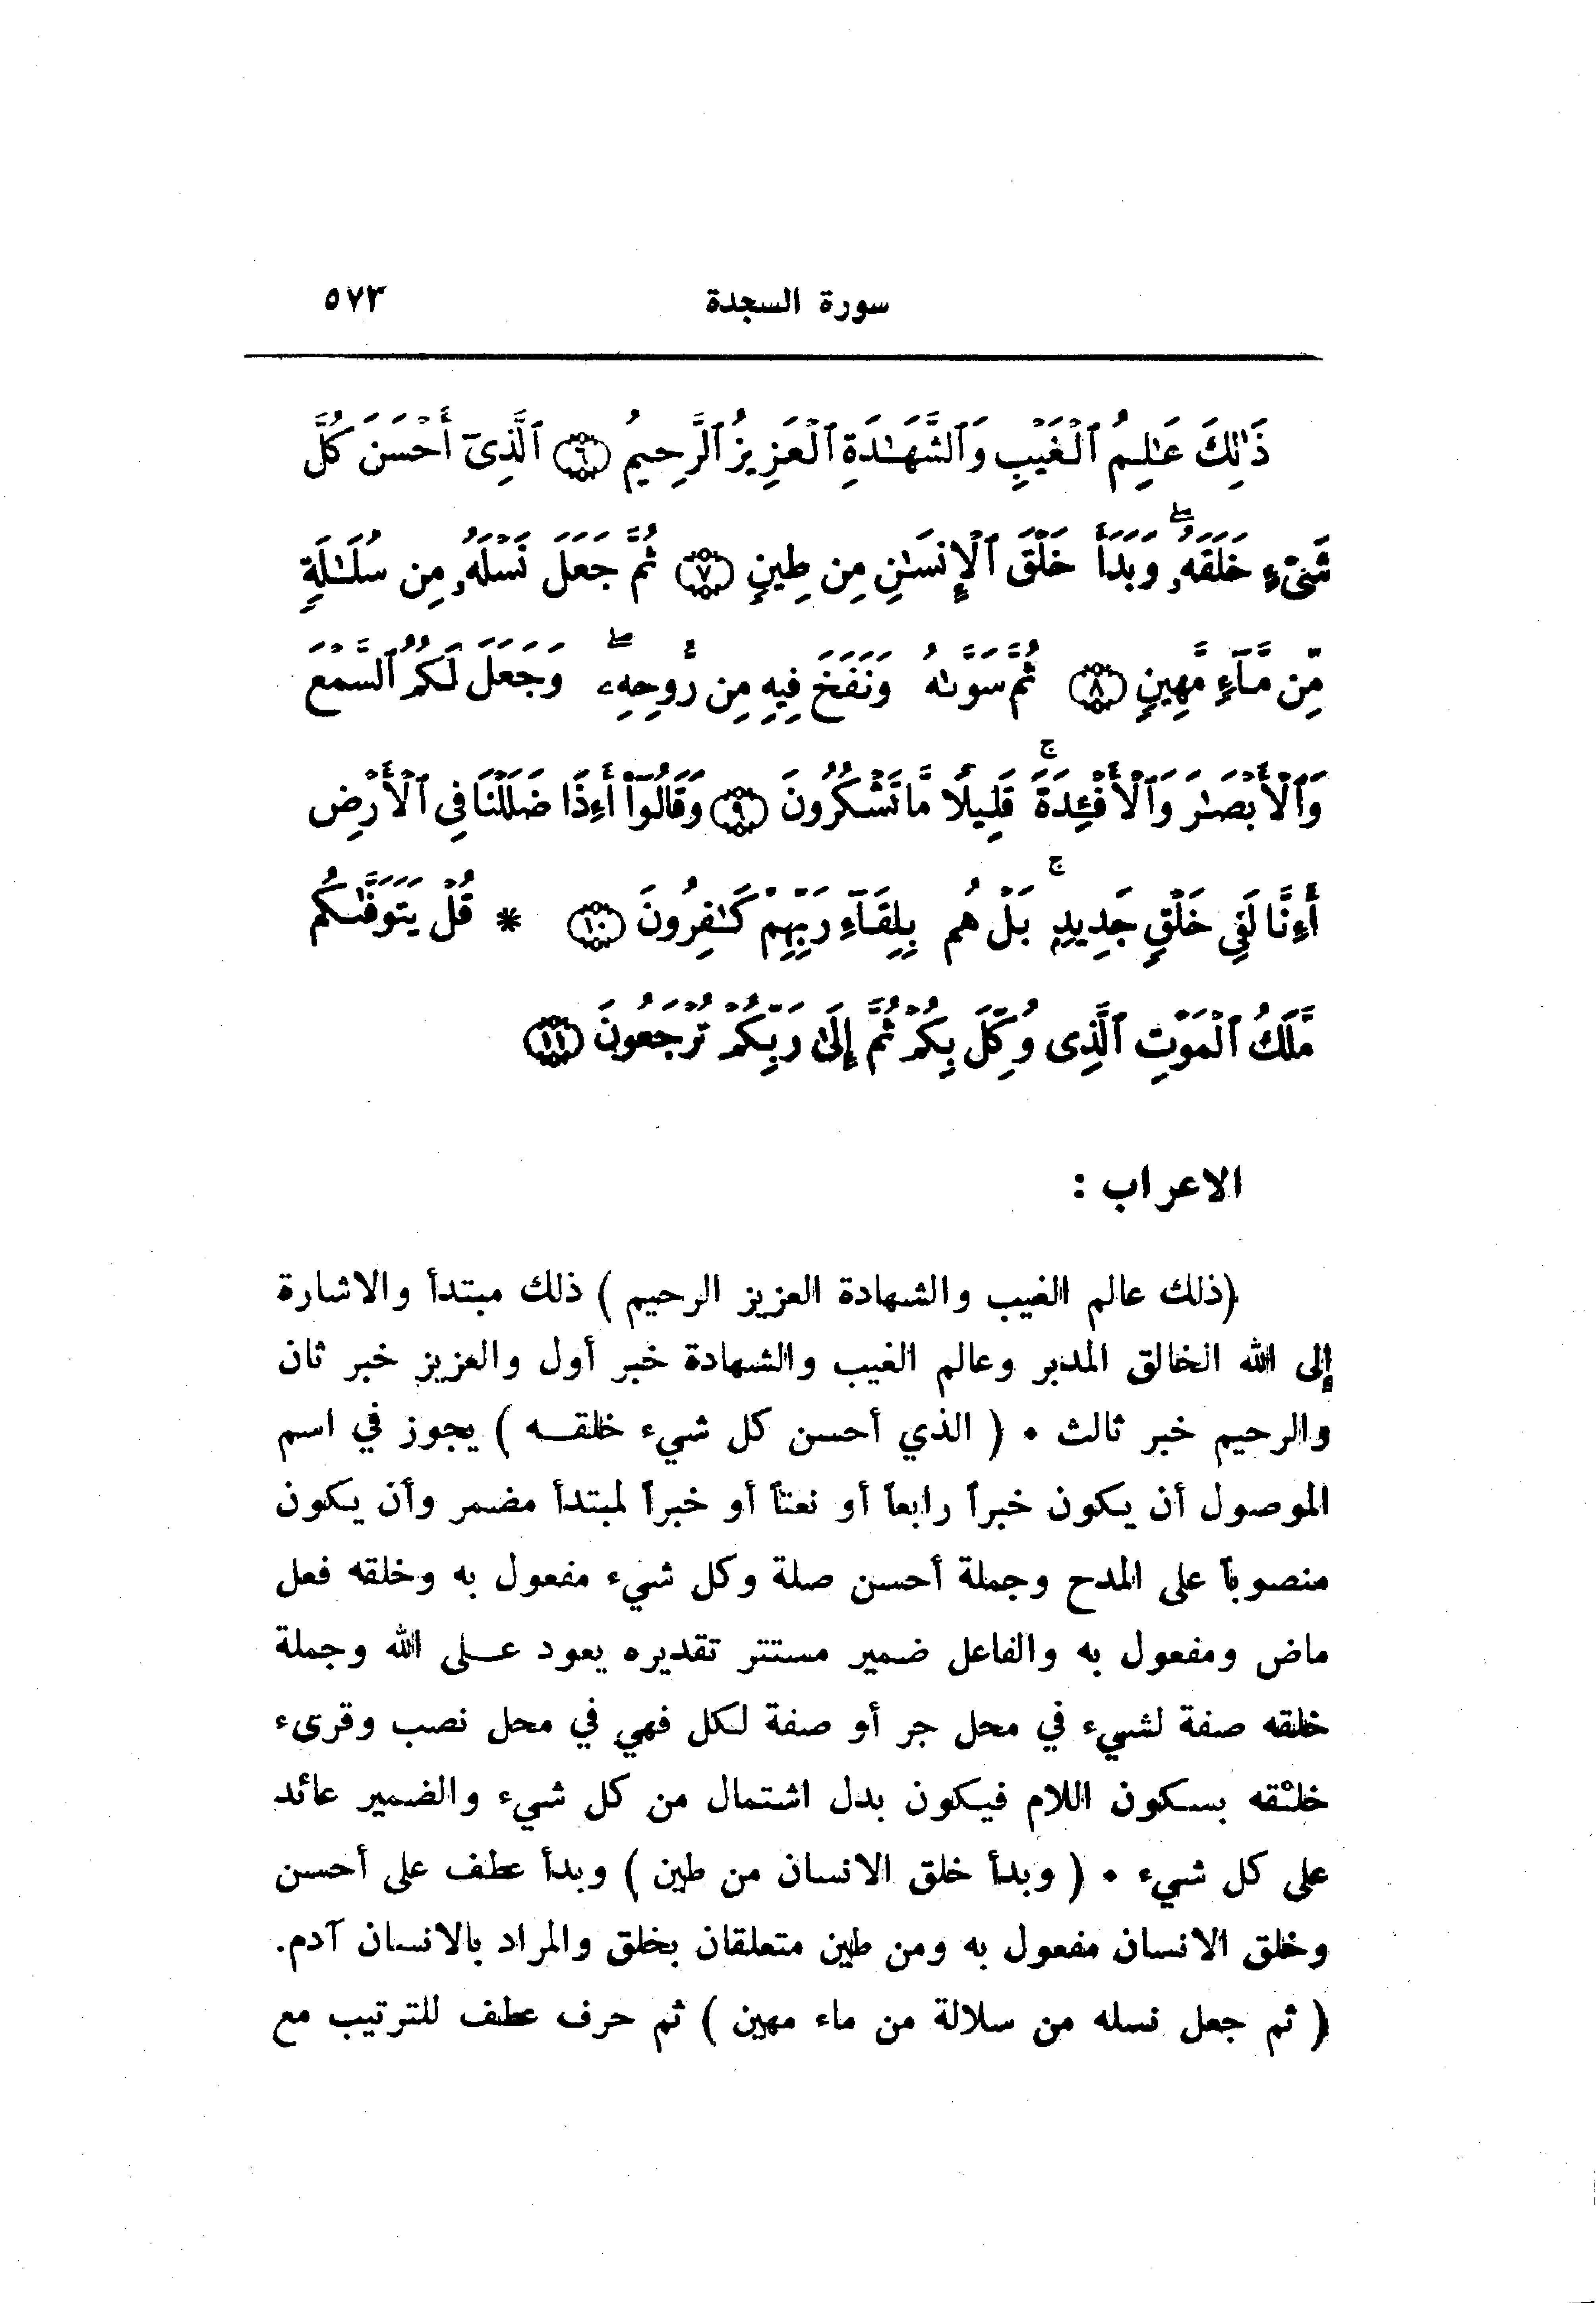 سورة السجدة ٥٧٣
ذَٰلِكَ عَـٰلِمُ ٱلْغَيْبِ وَٱلشَّهَـٰدَةِ ٱلْعَزِيزُ ٱلرَّحِيمُ ﴿٦﴾ ٱلَّذِىٓ أَحْسَنَ كُلَّ
شَىْءٍ خَلَقَهُۥ ۖ وَبَدَأَ خَلْقَ ٱلْإِنسَـٰنِ مِن طِينٍ ﴿٧﴾ ثُمَّ جَعَلَ نَسْلَهُۥ مِن سُلَـٰلَةٍ
مِّن مَّآءٍ مَّهِينٍ ﴿٨﴾ ثُمَّ سَوَّىٰهُ وَنَفَخَ فِيهِ مِن رُّوحِهِۦ ۖ وَجَعَلَ لَكُمُ ٱلسَّمْعَ
وَٱلْأَبْصَـٰرَ وَٱلْأَفْـِٔدَةَ ۚ قَلِيلًا مَّا تَشْكُرُونَ ﴿٩﴾ وَقَالُوٓا۟ أَءِذَا ضَلَلْنَا فِى ٱلْأَرْضِ
أَءِنَّا لَفِى خَلْقٍ جَدِيدٍۭ ۚ بَلْ هُم بِلِقَآءِ رَبِّهِمْ كَـٰفِرُونَ ﴿١٠﴾ * قُلْ يَتَوَفَّىٰكُم
مَّلَكُ ٱلْمَوْتِ ٱلَّذِى وُكِّلَ بِكُمْ ثُمَّ إِلَىٰ رَبِّكُمْ تُرْجَعُونَ ﴿١١﴾
الاعراب :
(ذلك عالم الغيب والشهادة العزيز الرحيم ) ذلك مبتدأ والاشارة
إلى الله الخالق المدبر وعالم الغيب والشهادة خبر أول والعزيز خبر ثان
والرحيم خبر ثالث • ( الذي أحسن كل شيء خلقـــه ) يجوز في اسم
الموصول أن يكون خبراً رابعاً أو نعتاً أو خبراً لمبتدأ مضمر وأن يكون
منصوباً على المدح وجملة أحسن صلة وكل شيء مفعول به وخلقه فعل
ماض ومفعول به والفاعل ضمير مستتر تقديره يعود عـــلى الله وجملة
خلقه صفة لشيء في محل جر أو صفة لكل فهي في محل نصب وقرىء
خلْقه بسكون اللام فيكون بدل اشتمال من كل شيء والضمير عائد
على كل شيء • ( وبدأ خلق الانسان من طين ) وبدأ عطف على أحسن
وخلق الانسان مفعول به ومن طين متعلقان بخلق والمراد بالانسان آدم.
( ثم جعل نسله من سلالة من ماء مهين ) ثم حرف عطف للترتيب مع